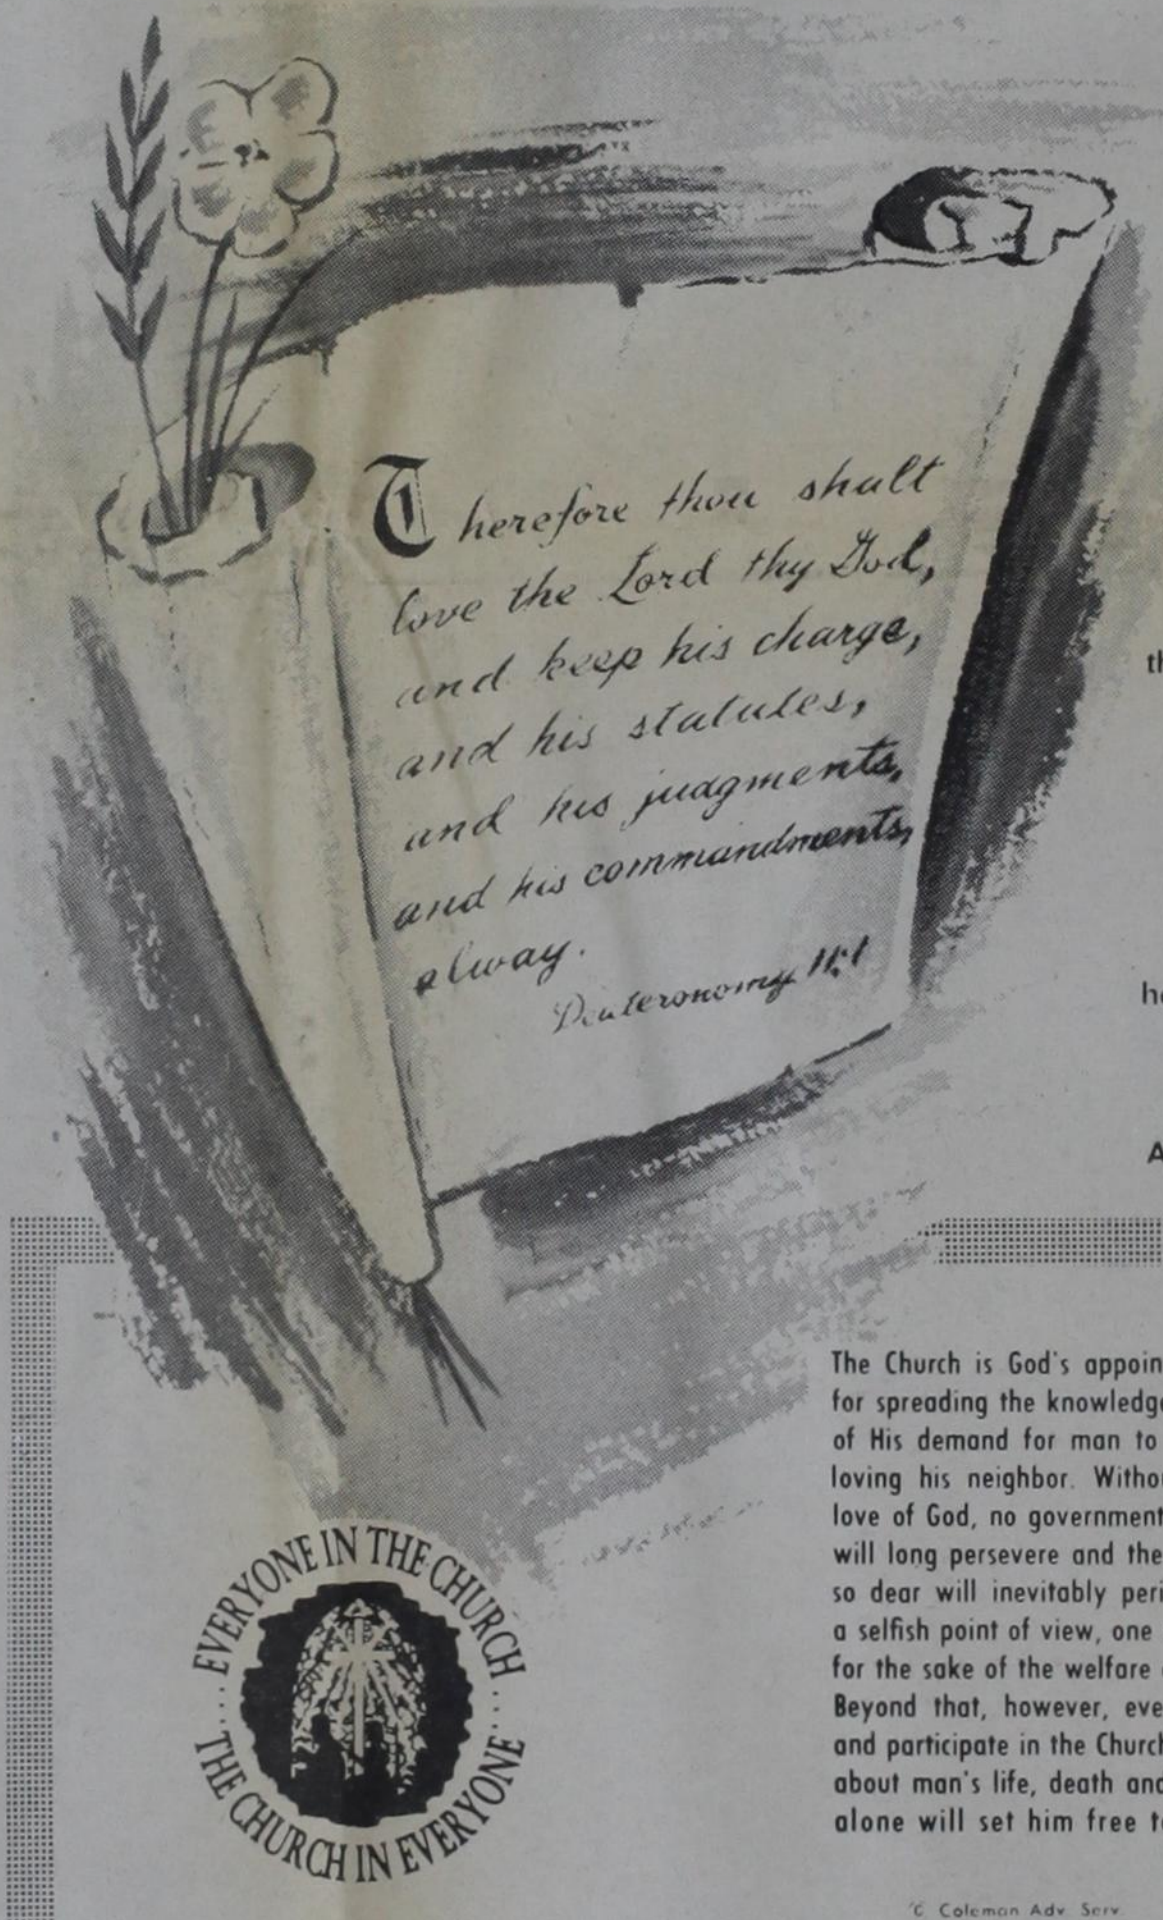 Therefore thou shalt
love the Lord thy God,
and keep his charge,
and his statutes,
and his judgments,
and his commandments,
alway.
Deuteronomy 11:1
th
he
A
The Church is God's appoin
for spreading the knowledge
of His demand for man to
loving his neighbor. Withou
love of God, no government
will long persevere and the
so dear will inevitably peri
a selfish point of view, one
for the sake of the welfare
Beyond that, however, eve
and participate in the Church
about man's life, death and
alone will set him free to
EVERYONE IN THE CHURCH
THE CHURCH IN EVERYONE
© Coleman Adv. Serv.